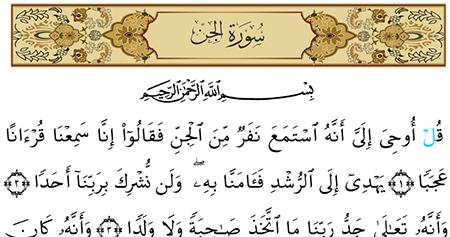 سُورَةُ الجِنِّ
بِسْمِ اللَّهِ الرَّحْمَٰنِ الرَّحِيمِ
قُلْ أُوحِىَ إِلَىَّ أَنَّهُ ٱسْتَمَعَ نَفَرٌ مِّنَ ٱلْجِنِّ فَقَالُوٓا۟ إِنَّا سَمِعْنَا قُرْءَانًا
عَجَبًا ﴿١﴾ يَهْدِىٓ إِلَى ٱلرُّشْدِ فَـَٔامَنَّا بِهِۦ ۖ وَلَن نُّشْرِكَ بِرَبِّنَآ أَحَدًا ﴿٢﴾
وَأَنَّهُۥ تَعَـٰلَىٰ جَدُّ رَبِّنَا مَا ٱتَّخَذَ صَـٰحِبَةً وَلَا وَلَدًا ﴿٣﴾ وَأَنَّهُۥ كَانَ